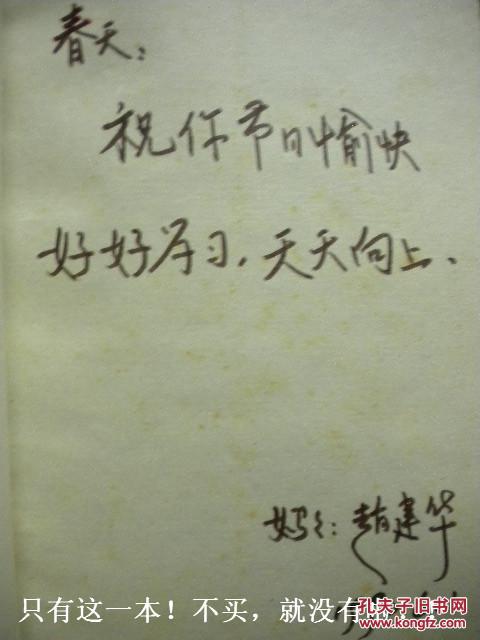 春天：
祝你节日愉快
好好学习，天天向上、
妈々：赵建华
只有这一本！不买，就没有
孔夫子旧书网
www.kongfz.com